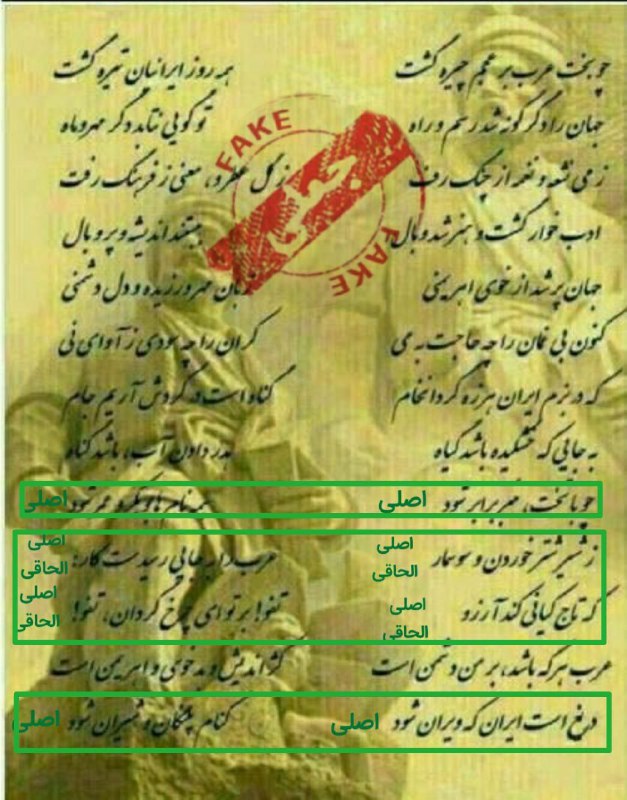 چو بخت عرب بر عجم چیره گشت همه روز ایرانیان تیره گشت
جهان را دگرگونه شد رسم و راه تو گویی نتابد دگر مهر و ماه
ز می نشئه و نغمه از چنگ رفت ز گل عطر و، معنی ز فرهنگ رفت
ادب خوار گشت و هنر شد وبال ببستند اندیشه و پر و بال
جهان پر شد از خوی اهریمنی زبان مهر ورزیده و دل دشمنی
کنون بی غمان را چه حاجت به می کران را چه سودی ز آوای نی
که در بزم این هرزه گردان خام گناه است در گردش آریم جام
به جایی که خشکیده باشد گیاه هدر دادن آب، باشد گناه
چو با تخت، منبر برابر شود همه نام بوبکر و عمر شود
ز شیر شتر خوردن و سوسمار عرب را به جایی رسیدست کار،
که تاج کیانی کند آرزو تفو! بر تو ای چرخ گردان، تفو!
عرب هر که باشد، بر من دشمن است کژاندیش و بدخوی و اهریمن است
دریغ است ایران که ویران شود کنام پلنگان و شیران شود
FAKE
جعلی
FAKE
اصلی اصلی
اصلی اصلی
الحاقی الحاقی
اصلی اصلی
الحاقی الحاقی
اصلی اصلی